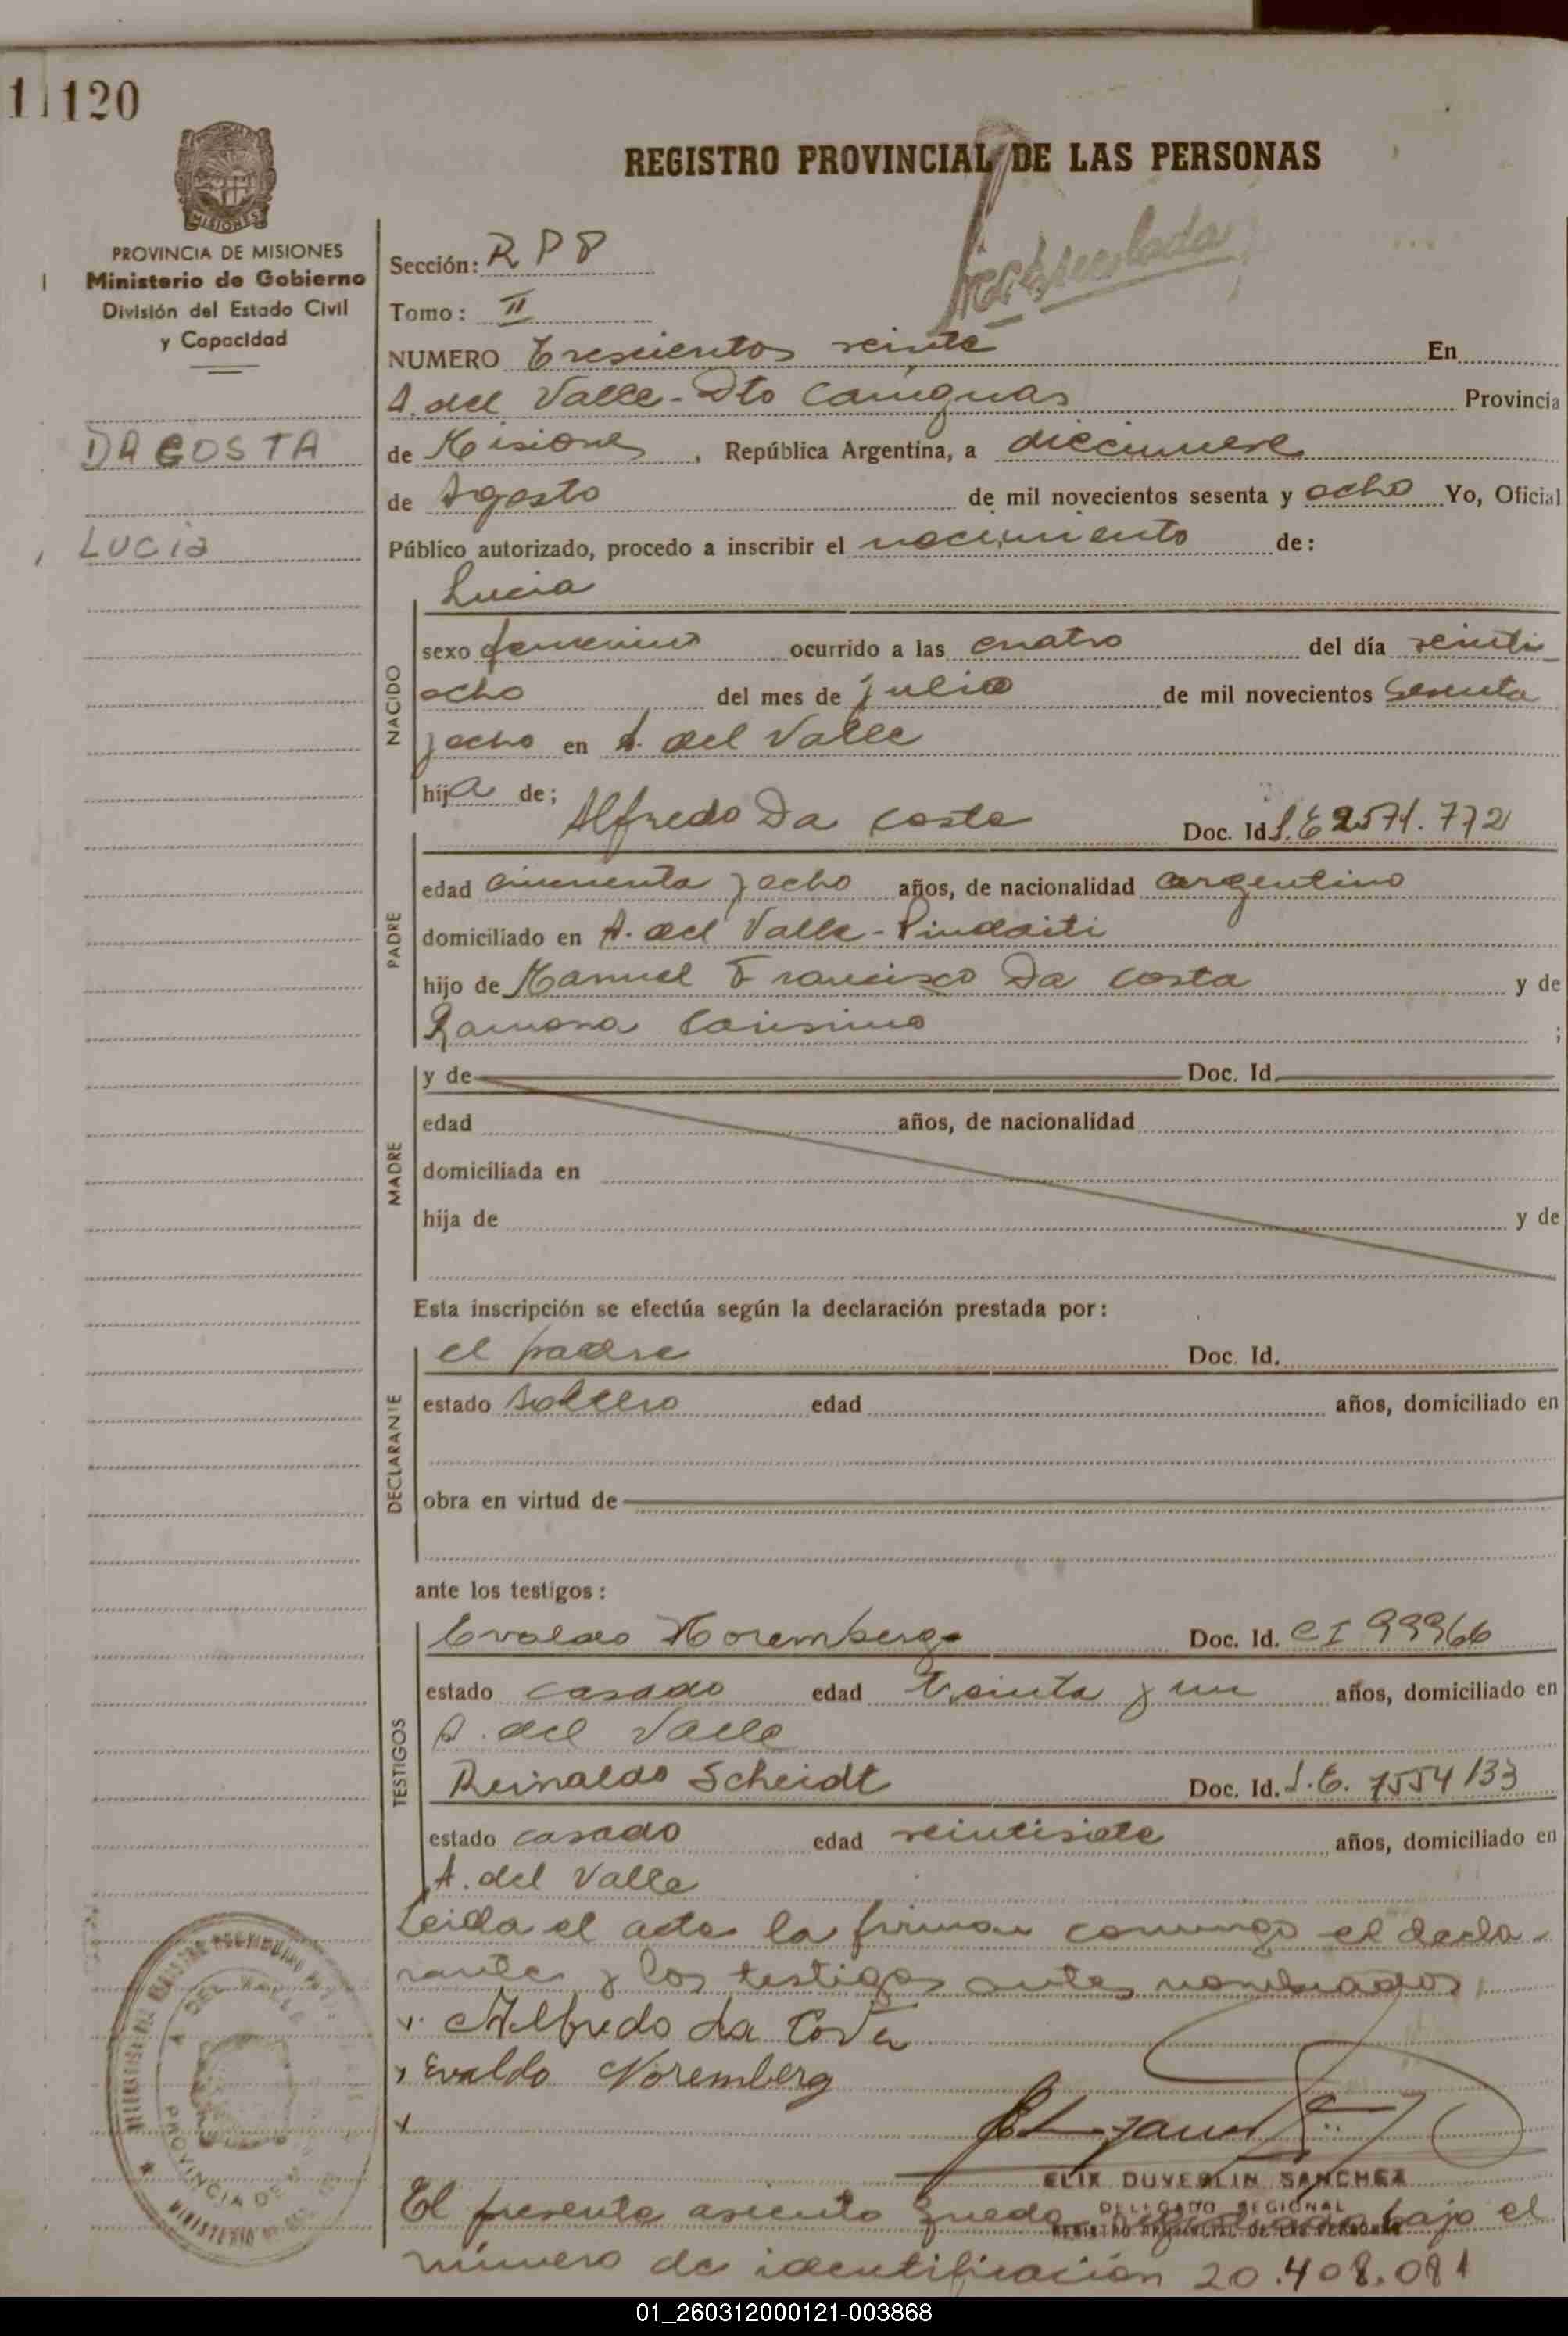 1 120
REGISTRO PROVINCIAL DE LAS PERSONAS
MISIONES
PROVINCIA DE MISIONES
Ministerio de Gobierno
División del Estado Civil
y Capacidad
DA COSTA
LUCIA
Sección: R P P
Tomo: II
NUMERO Trescientos veinte En
A. del Valle - Dto Cainguas Provincia
de Misiones, República Argentina, a diecinueve
de Agosto de mil novecientos sesenta y ocho Yo, Oficial
Público autorizado, procedo a inscribir el nacimiento de:
NACIDO
Lucia
sexo femenino ocurrido a las cuatro del día veinti-
ocho del mes de julio de mil novecientos sesenta
y ocho en A. del Valle
hija de;
PADRE
Alfredo Da Costa Doc. Id L.E 2571.772
edad cincuenta y ocho años, de nacionalidad argentino
domiciliado en A. del Valle - Pindaiti
hijo de Manuel Francisco Da Costa y de
Ramona ;
MADRE
y de Doc. Id.
edad años, de nacionalidad
domiciliada en
hija de y de
Esta inscripción se efectúa según la declaración prestada por:
DECLARANTE
el padre Doc. Id.
estado soltero edad años, domiciliado en
obra en virtud de
ante los testigos:
TESTIGOS
Evaldo Noremberg Doc. Id. CI 99966
estado casado edad treinta y un años, domiciliado en
A. del Valle
Reinaldo Scheidt Doc. Id. L.E. 7554133
estado casado edad veintisiete años, domiciliado en
A. del Valle
Leida el acta la firman conmigo el decla-
rante y los testigos antes nombrados
x Alfredo da Costa
x Evaldo Noremberg
x
ELIX DUVERLIN SANCHEZ
DELEGADO REGIONAL
REGISTRO PROVINCIAL DE LAS PERSONAS
El presente asiento queda bajo el
número de identificación 20.408.081
A. DEL VALLE
PROVINCIA DE
MINISTERIO
01_260312000121-003868